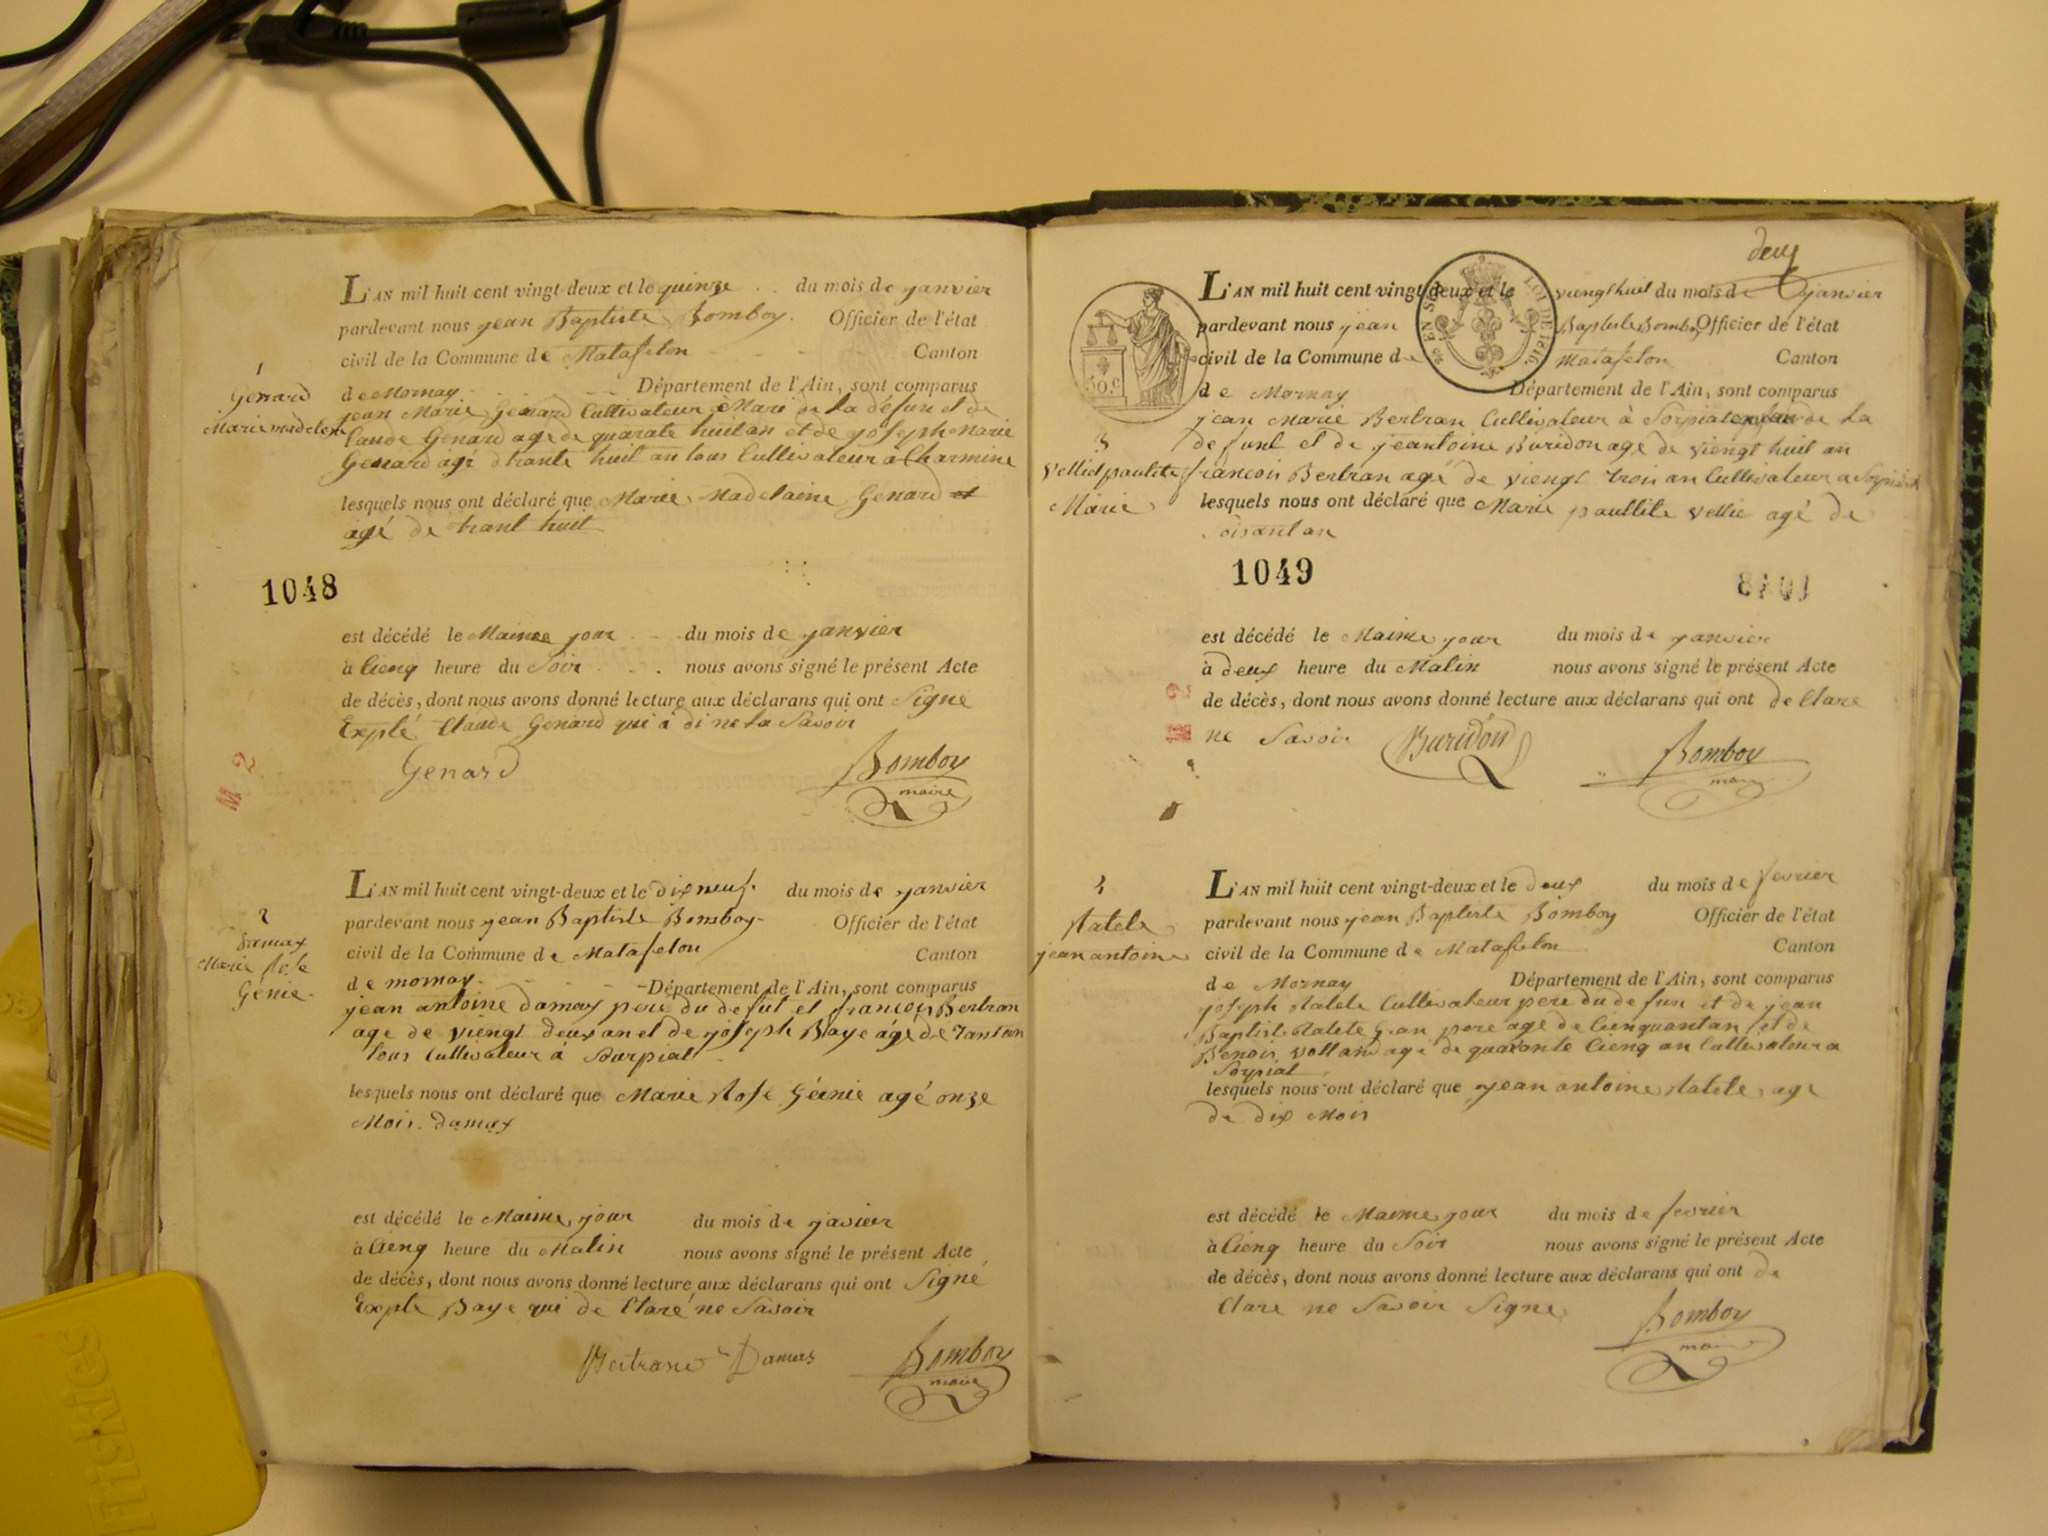 1
Genard
Marie madelene
L'AN mil huit cent vingt-deux et le quinze du mois de janvier
pardevant nous jean Baptiste Bomboy Officier de l'état
civil de la Commune de Matafelon Canton
de Mornay Département de l'Ain, sont comparus
jean Marie Genard Cultivateur Mari de la défunt et de
Claude Genard agé de quarate huit an et de joseph Marie
Genard agé trante huit an tous Cultivateur à Charmine
lesquels nous ont déclaré que Marie Madelaine Genard
agé de trant huit
1048
est décédé le Maime jour du mois de janvier
à Cienq heure du Soir nous avons signé le présent Acte
de décès, dont nous avons donné lecture aux déclarans qui ont Signé
Explé Claude Genard qui à di ne la Savoir
Genard
Bomboy
maire
M 2
2
Damaz
Marie Rose
Génie
L'AN mil huit cent vingt-deux et le dix neuf du mois de janvier
pardevant nous jean Baptiste Bomboy Officier de l'état
civil de la Commune de Matafelon Canton
de mornay Département de l'Ain, sont comparus
jean antoine Damaz pere du defut et francois Bertran
age de viengt deux an et de joseph Baye agé de
tous Cultivateur à Surpiat
lesquels nous ont déclaré que Marie Rose Génie agé onze
Mois Damaz
est décédé le Maime jour du mois de javier
à Cienq heure du Matin nous avons signé le présent Acte
de décès, dont nous avons donné lecture aux déclarans qui ont Signé
Exple Baye qui de Claré ne Savoir
Bertrane Damas
Bomboy
maire
deux
L'AN mil huit cent vingt-deux et le viengt huit du mois de janvier
pardevant nous jean Baptiste Bomboy Officier de l'état
civil de la Commune de Matafelon Canton
de Mornay Département de l'Ain, sont comparus
EN SUS
LOI DE 1816
50.C
3
Velliet paulite
Marie
jean Marie Bertran Cultivateur à Sorpiat de la
defunt et de jeantoine Buridon age de viengt huit an
francois Bertran agé de viengt trois an Cultivateur a Sorpiat
lesquels nous ont déclaré que Marie paullite Vellie agé de
Soisant an
1049
est décédé le Maime jour du mois de janvier
à deux heure du Matin nous avons signé le présent Acte
de décès, dont nous avons donné lecture aux déclarans qui ont de Clare
ne Savoir
Buridon
Bomboy
maire
Ratele
jean antoine
L'AN mil huit cent vingt-deux et le deux du mois de fevrier
pardevant nous jean Baptiste Bomboy Officier de l'état
civil de la Commune de Matafelon Canton
de Mornay Département de l'Ain, sont comparus
joseph Ratele Cultivateur pere du defun et de jean
Baptiste Ratele gran pere age de Cienquantan et de
Benois Volland age de quarante Cienq an Cultivateur a
Sorpiat
lesquels nous ont déclaré que jean antoine Ratele age
de dix Mois
est décédé le Maime jour du mois de fevrier
à Cienq heure du Soir nous avons signé le présent Acte
de décès, dont nous avons donné lecture aux déclarans qui ont de
Clare ne Savoir Signe
Bomboy
maire